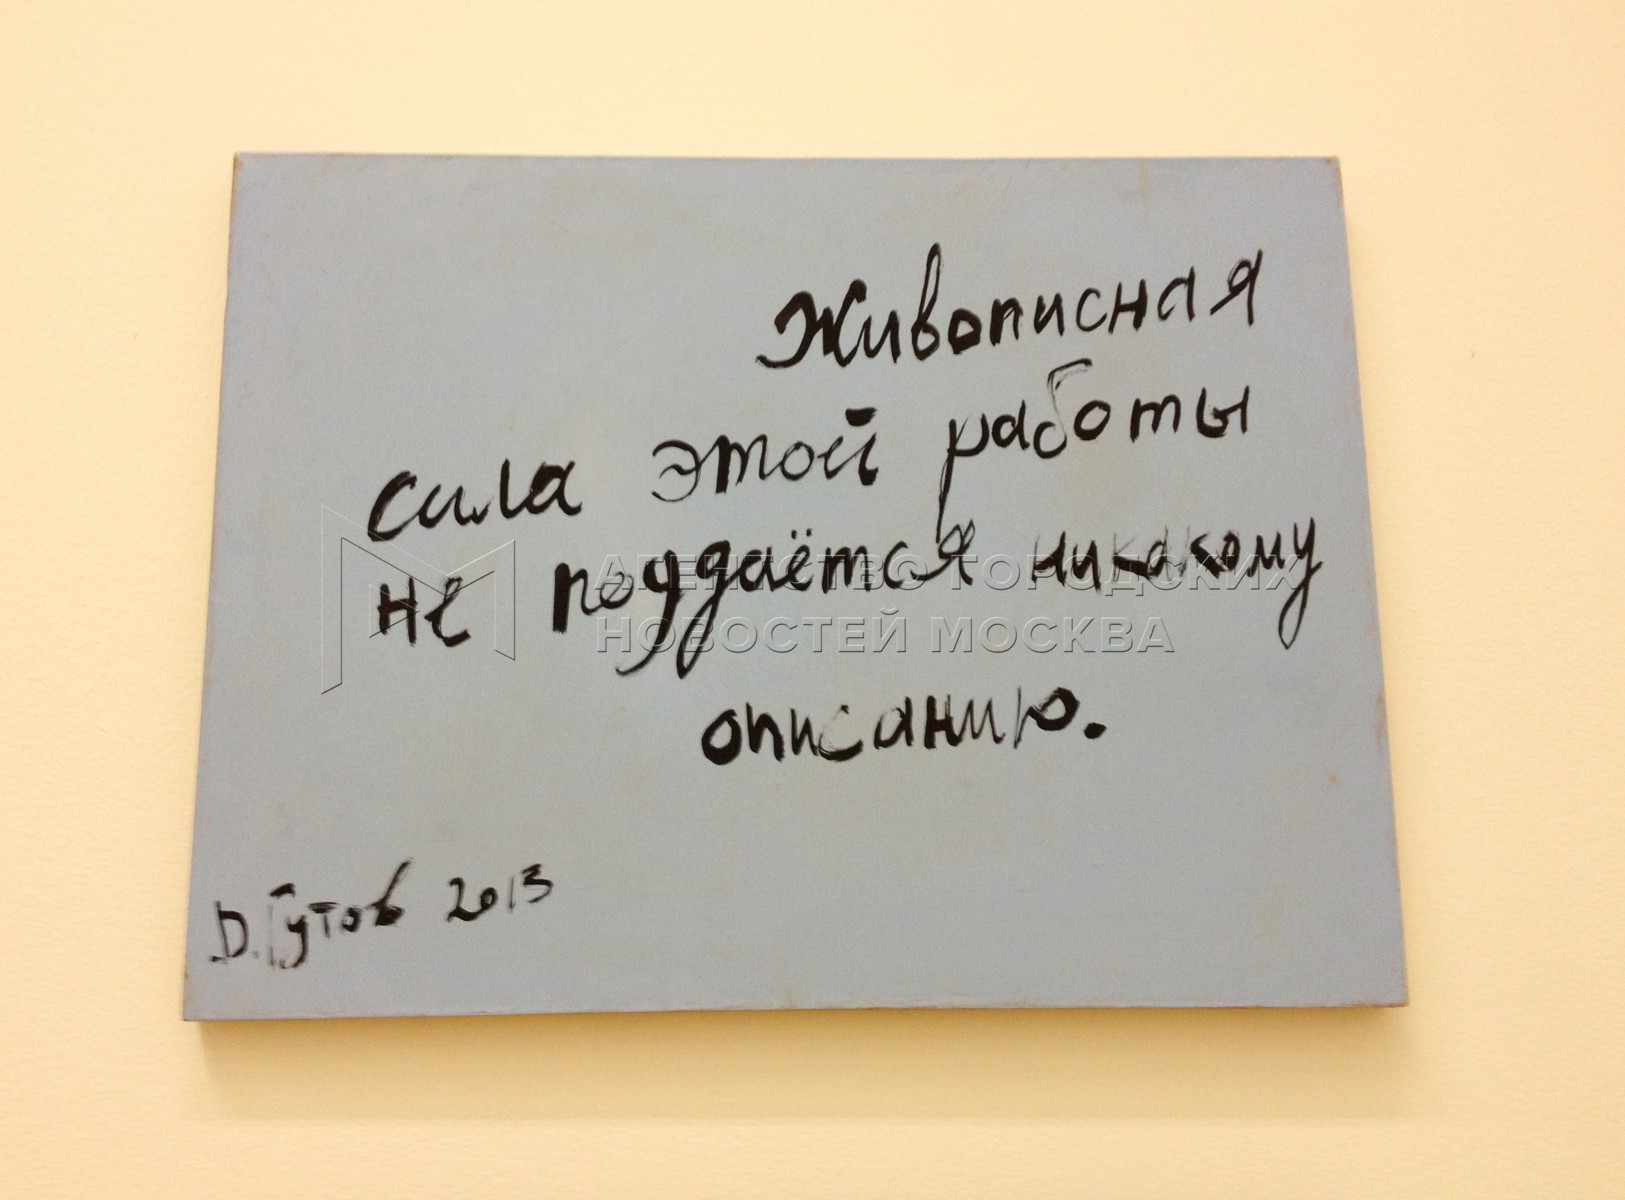 Живописная
сила этой работы
не поддаётся никакому
описанию.
D. Гутов 2013
АГЕНТСТВО ГОРОДСКИХ
НОВОСТЕЙ МОСКВА